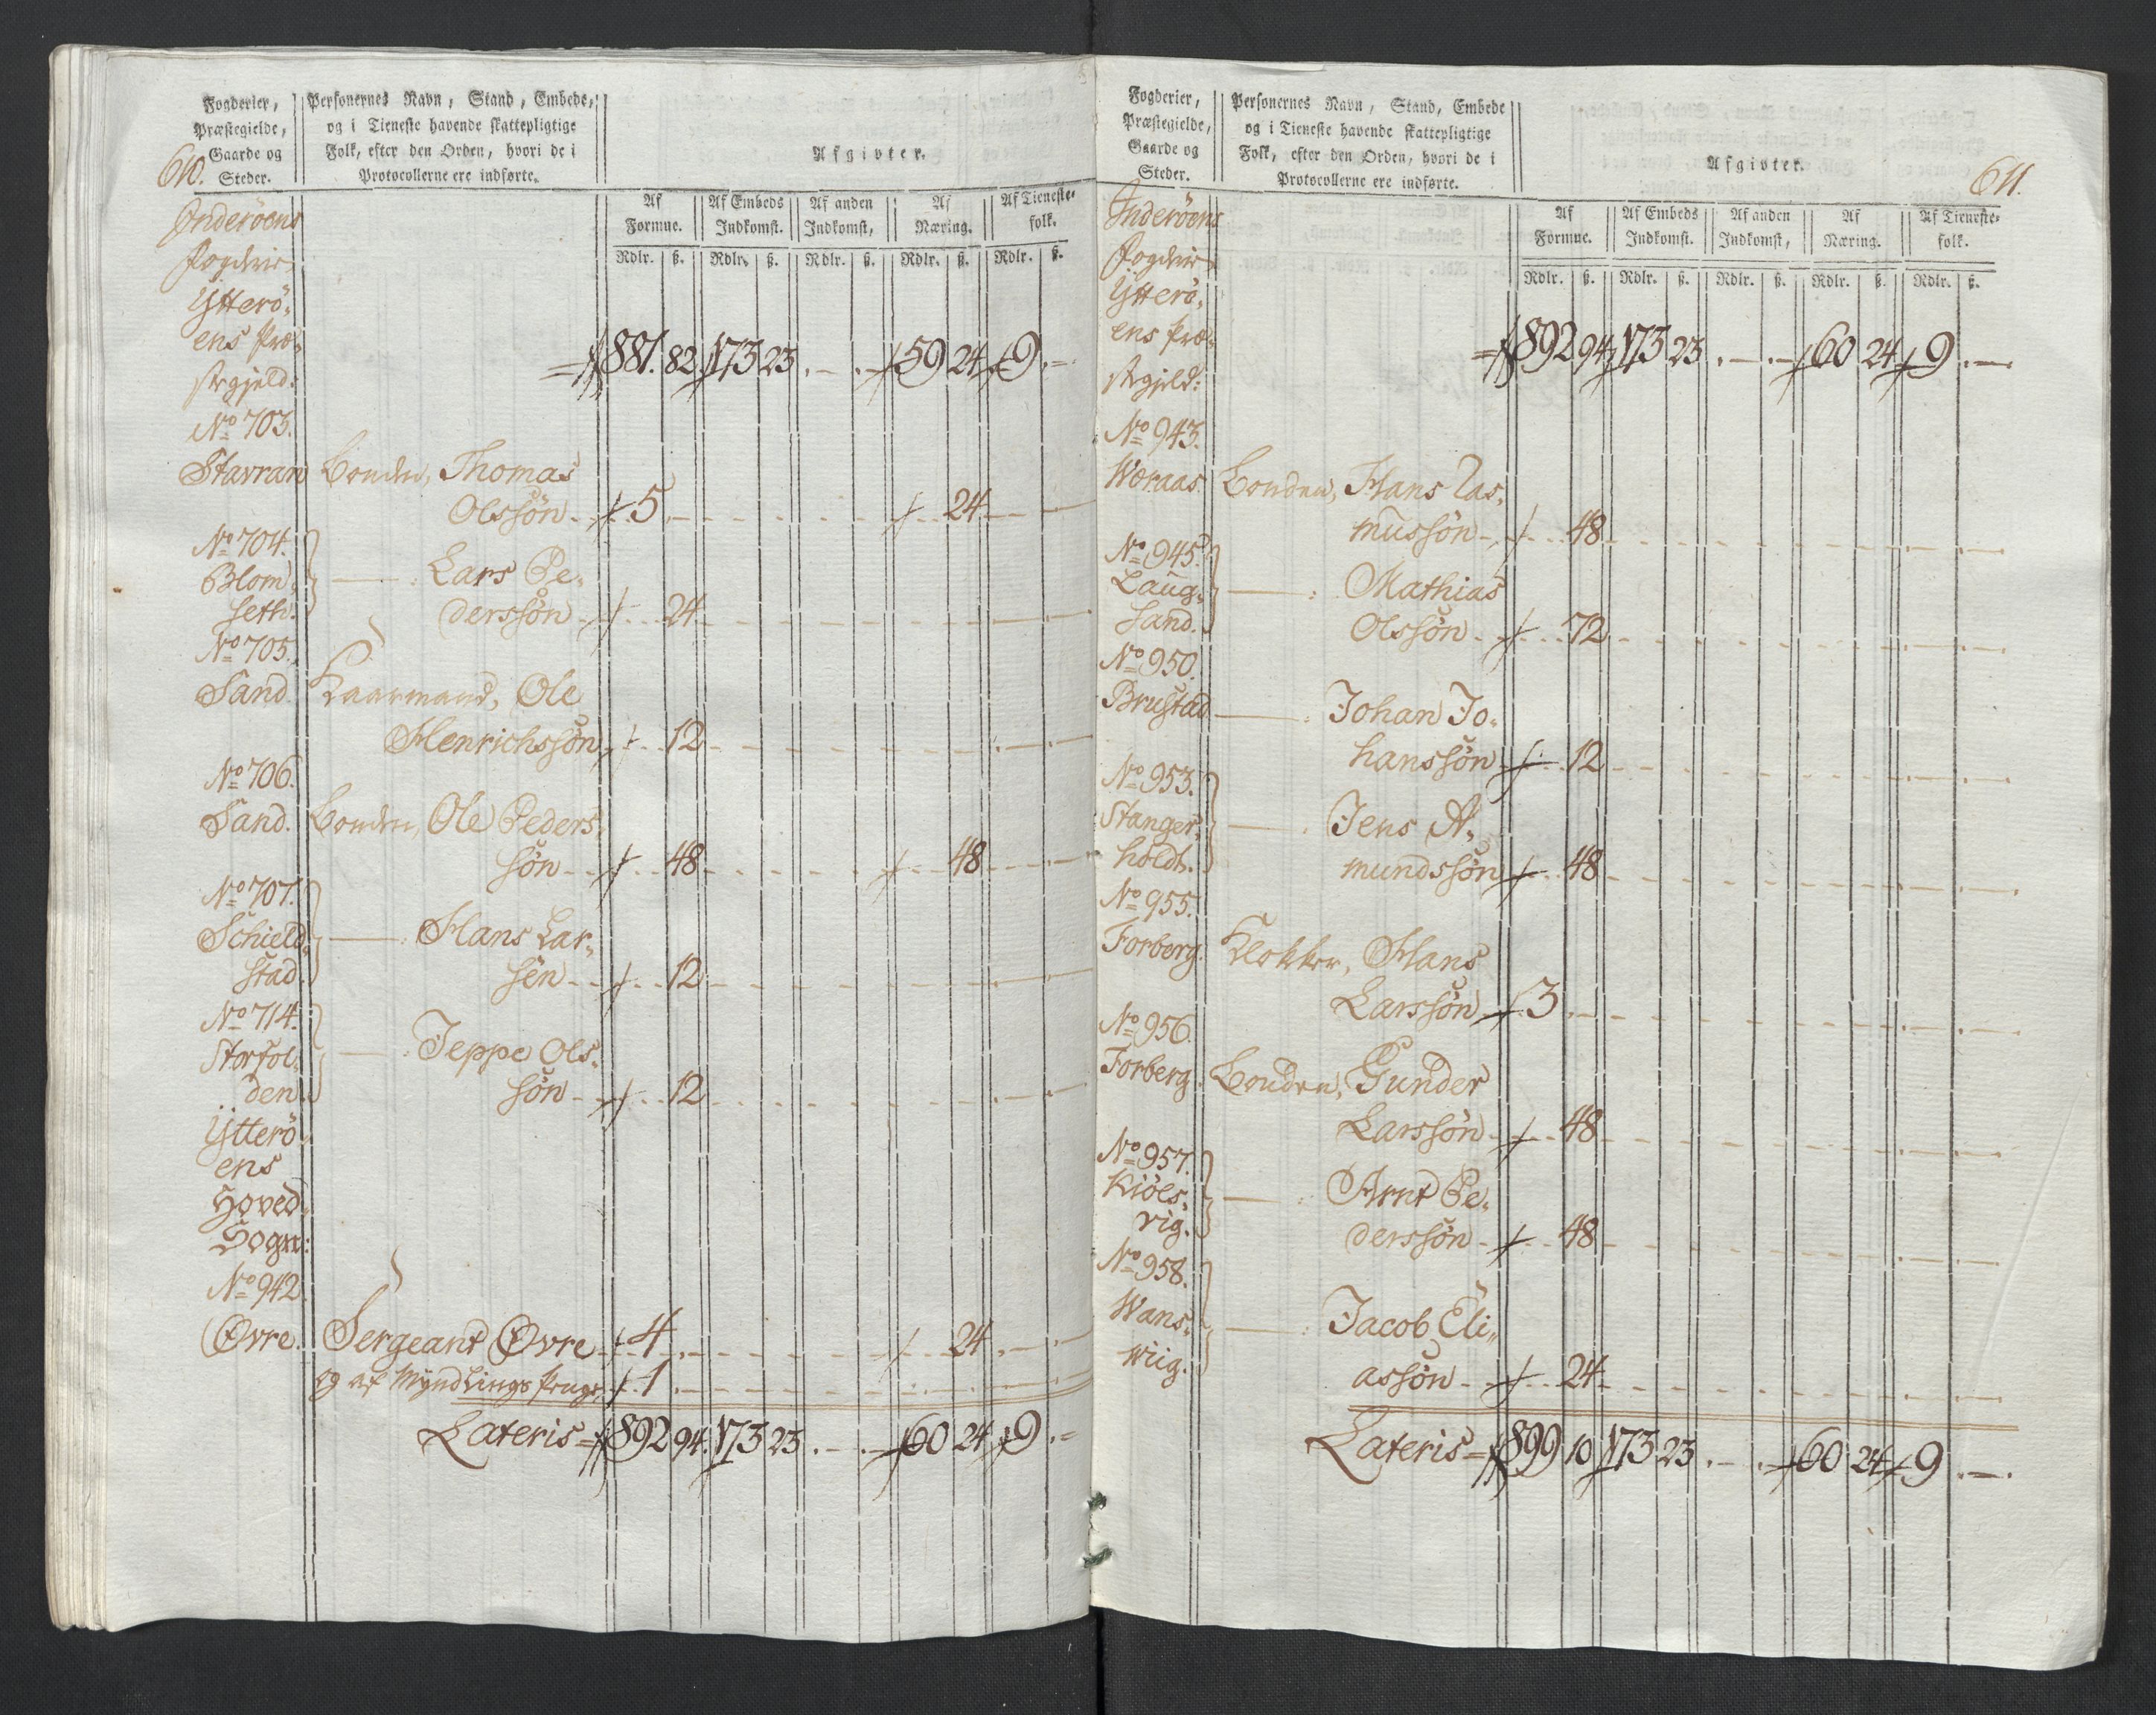 610.
Fogderier,
Præstegielde,
Gaarde og
Steder.
Personernes Navn, Stand, Embede,
og i Tieneste havende skattepligtige
Folk, efter den Orden, hvori de i
Protocollerne ere indførte.
Afgivter.
Af Formue. Af Embeds Indkomst. Af anden Indkomst, Af Næring. Af Tieneste-folk.
Rdlr. ß. Rdlr. ß. Rdlr. ß. Rdlr. ß. Rdlr. ß.
Inderöens
Fogderie,
Ytterö-
ens Præ-
stegjeld: 881. 82. 173 23 . — . — 59 24 9 . —
No 703.
Stavran Bonden, Thomas
Olssön - 5 . - 24 -
No 704.
Blom- — : Lars Pe-
seth. derssön - 24
No 705.
Sand Kaarmand, Ole
Henrichssön, 12
No 706.
Sand. Bonden, Ole Peders
sön - 48 - 48
No 707.
Schield- — : Hans Lar-
stad. sen - 12
No 714.
Storfol- — : Jeppe Ols-
den. sön - 12
Ytterö-
ens
Hoved-
Sogn:
No 942.
Øvre. Sergeant Øvre - 4 . - 24 . -
og af Myndlings Penge, 1 . -
Lateris = 892 94. 173 23 . — . — 60 24 9 . —
611.
Fogderier,
Præstegielde,
Gaarde og
Steder.
Personernes Navn, Stand, Embede
og i Tieneste havende skattepligtige
Folk, efter den Orden, hvori de i
Protocollerne ere indførte.
Afgivter.
Af Formue. Af Embeds Indkomst. Af anden Indkomst, Af Næring. Af Tieneste-folk.
Rdlr. ß. Rdlr. ß. Rdlr. ß. Rdlr. ß. Rdlr. ß.
Inderöens
Fogderie,
Ytterö-
ens Præ-
stegjeld: 892 94 173 23 . — . — 60 24 9 . —
No 943.
Woraas. Bonden, Hans Ras-
mussön - 48
No 945.
Laug- — : Mathias
sand. Olssön - 72
No 950.
Brustad — : Johan Jo-
hanssön 12
No 953.
Stanger- — : Jens A-
holdt. mundssön 48
No 955.
Forberg. Klokker, Hans
Larssön 3 .
No 956.
Forberg. Bonden, Gunder
Larssön - 48
No 957.
Kiöls- — : Arnt Pe-
vig. derssön - 48
No 958.
Wans- — : Jacob Eli-
wiig. assön - 24
Lateris = 899 10 173 23 . — . — 60 24 9 . —